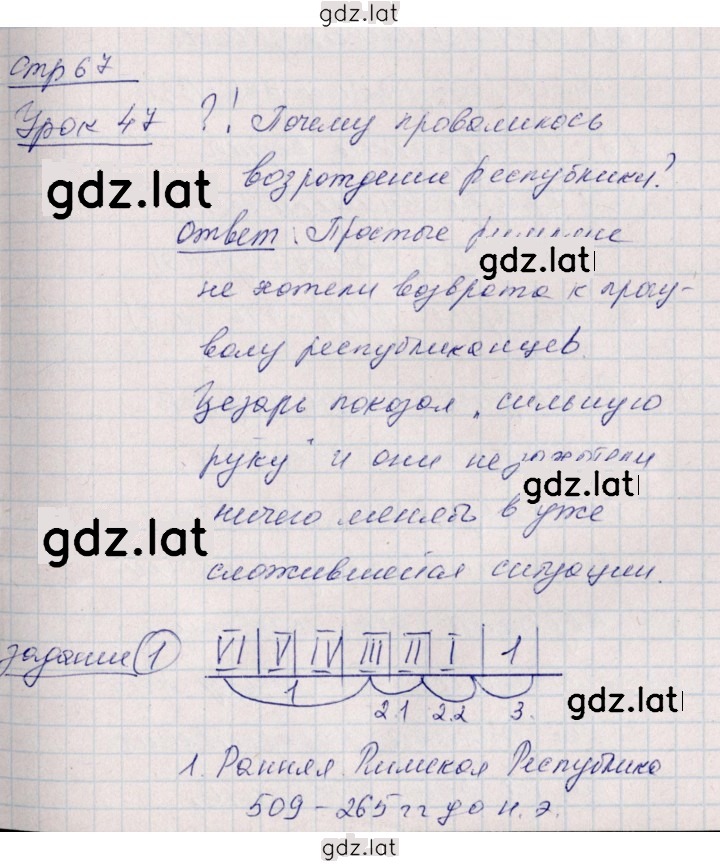 gdz.lat
стр 67
Урок 47 ?! Почему провалилось
gdz.lat возрождение республики?
Ответ: Простые римляне
gdz.lat
не хотели возврата к прау-
волу республиканцев.
Цезарь показал „сильную
руку" и они не захотели
gdz.lat
ничего менять в уже
gdz.lat
сложившейся ситуации.
задание 1 VI V IV III II I 1
1 2.1 2.2 3.
gdz.lat
1. Ранняя Римская Республика
509 – 265 гг до н. э.
gdz.lat